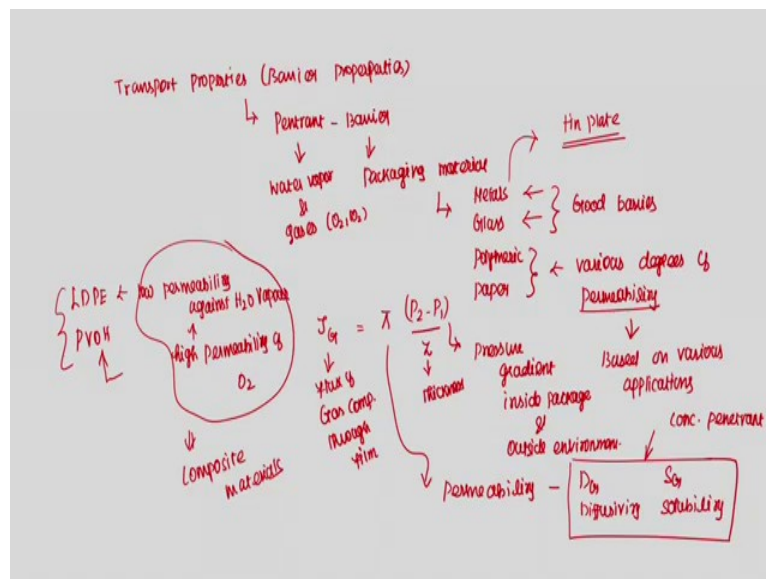 Transport Properties (Barrier Properpaties)
↳ Pentrant - Barrier
↓ ↓
water vapor
&
gases (O₂, CO₂)
Packaging material
↳ Metals ←
Glass ←
} Good barries
→ tin plate
Polymeric
paper
} ← various degrees of
permeability
↓
Based on various
applications
{ LDPE ← low permeability
against H₂O vapour
{ PVOH
high permeability of
O₂
↓
Composite
materials
J_G = π (P₂-P₁)
z
↓
flux of
Gas comp.
through
film
↓
thickness
↳ pressure
gradient
inside package
&
outside environmen.
conc. penetrant
permeability - D_G S_G
Diffusiving solubility